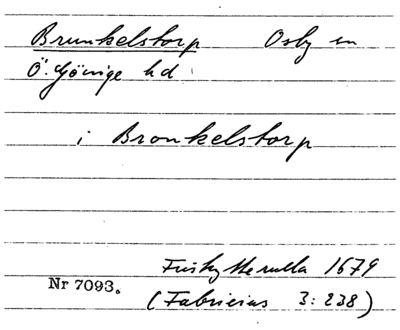 Brunkelstorp Osby sn
Ö. Göinge hd
i Bronkelstorp
Friskytterulla 1679
Nr 7093.
(Fabricius 3: 238)